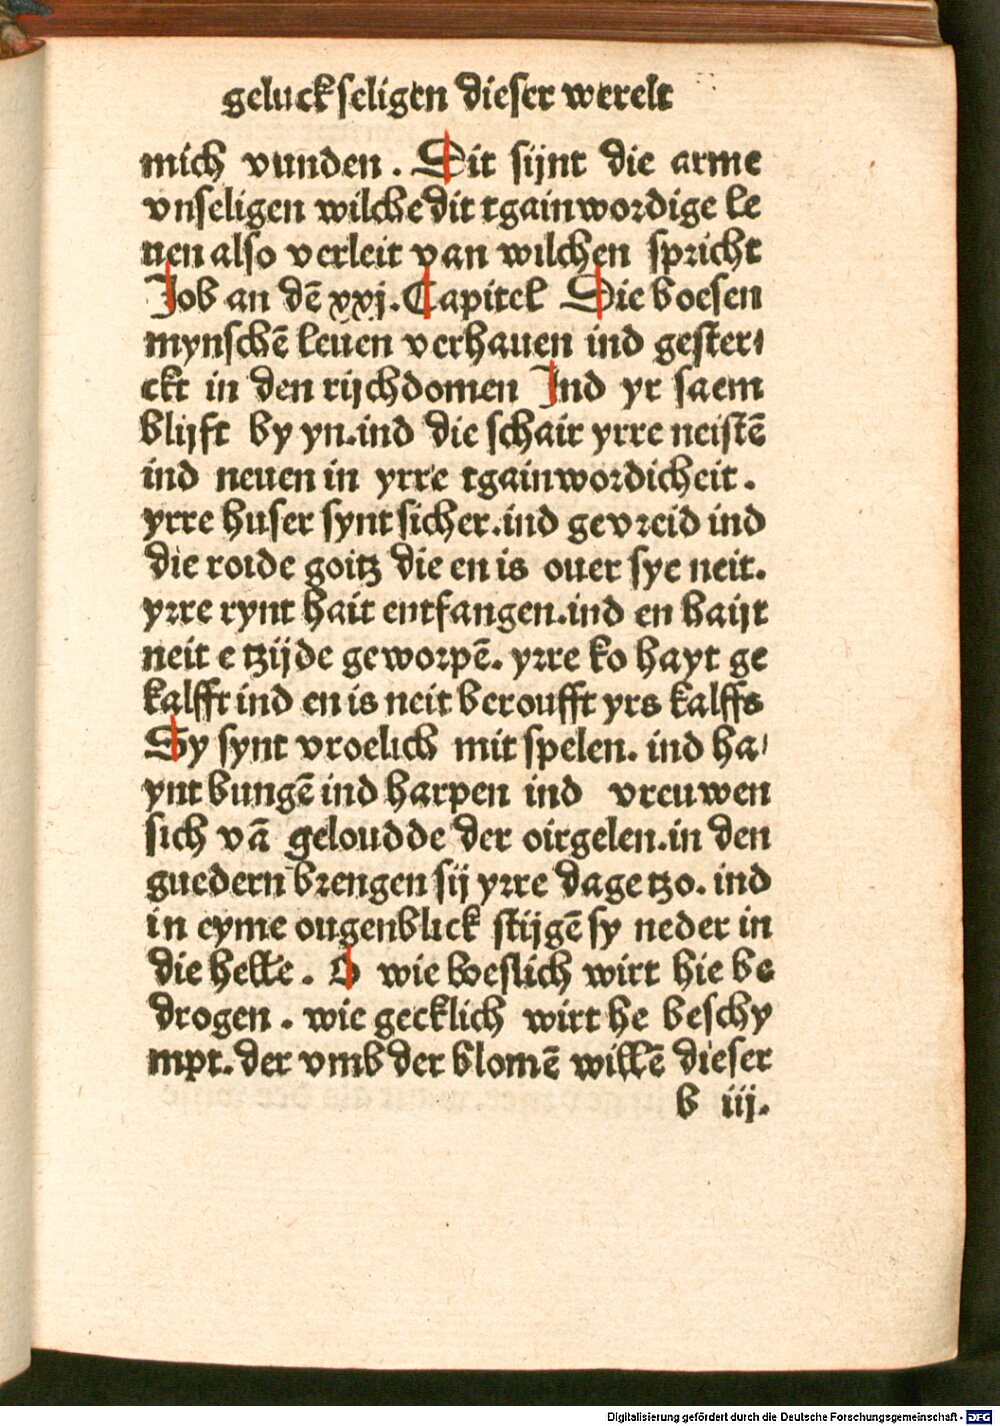 geluckseligen dieser werelt
mich vunden . Dit sijnt die arme
vnseligen wilche dit tgainwordige le
uen also verleit van wilchen spricht
Job an dē xxj. Capitel Die boesen
mynschē leuen verhauen ind gester⸗
ckt in den rijchdomen Ind yr saem
blijft by yn.ind die schair yrre neistē
ind neuen in yrre tgainwordicheit.
yrre huser synt sicher.ind gevreid ind
die roide goitz die en is ouer sye neit.
yrre rynt hait entfangen.ind en haijt
neit e tzijde geworpē. yrre ko hayt ge
kalfft ind en is neit beroufft yrs kalffs
Sy synt vroelich mit spelen. ind ha⸗
ynt bungē ind harpen ind vreuwen
sich vā geloudde der oirgelen.in den
guedern brengen sij yrre dage tzo. ind
in eyme ougenblick stijgē sy neder in
die helle . O wie boeslich wirt hie be
drogen . wie gecklich wirt he beschy
mpt. der vmb der blomē willē dieser
b iij.
Digitalisierung gefördert durch die Deutsche Forschungsgemeinschaft - DFG